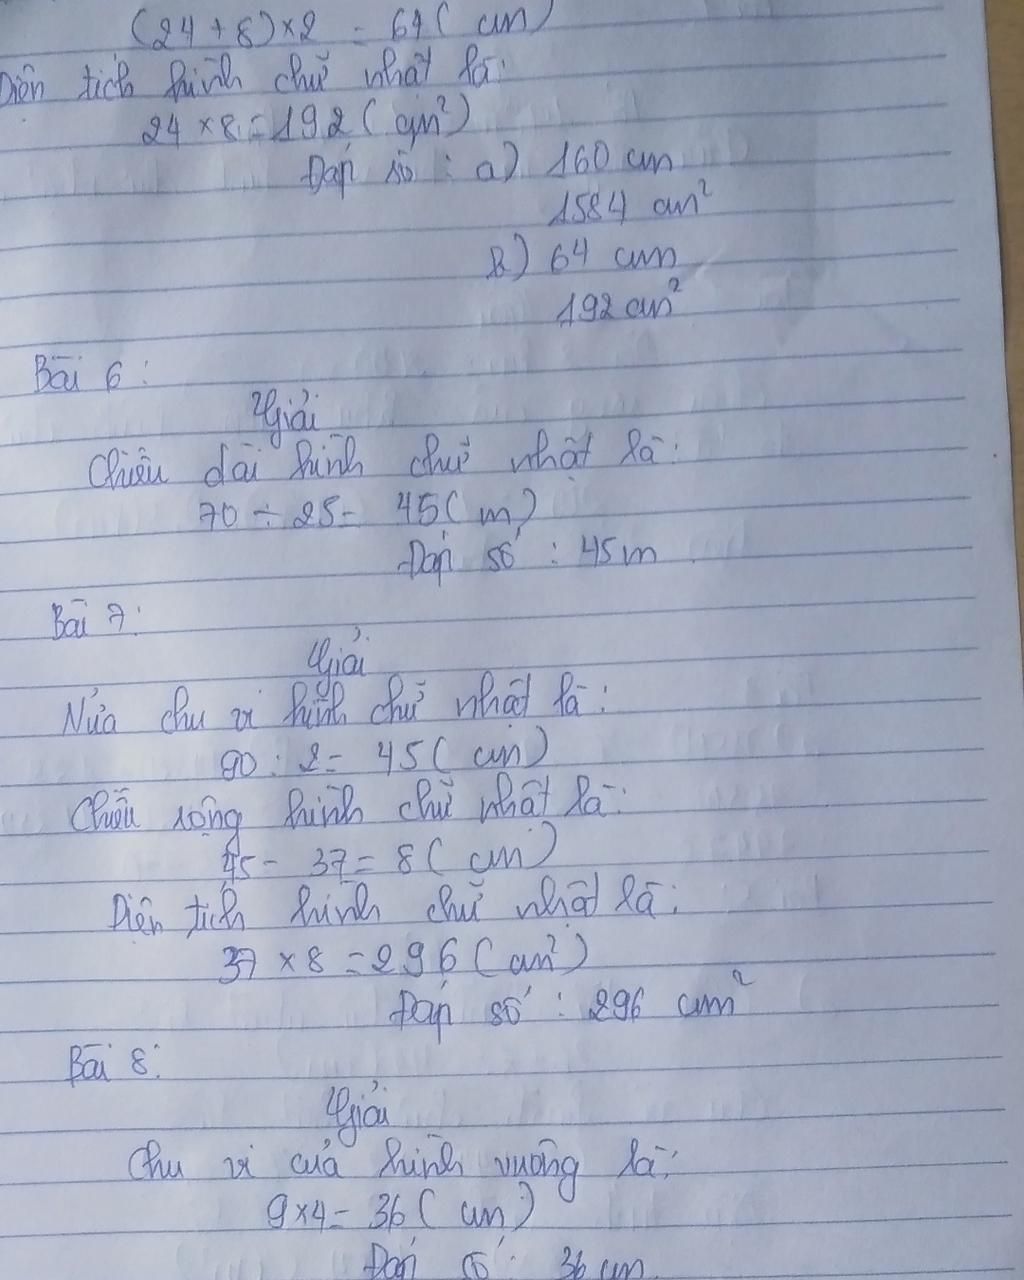 (24 + 8) × 2 = 64 (cm)
Diện tích hình chữ nhật là:
24 × 8 = 192 (cm²)
Đáp số : a) 160 cm
1584 cm²
b) 64 cm
192 cm²
Bài 6 :
Giải
Chiều dài hình chữ nhật là :
70 - 25 = 45 (m)
Đáp số : 45 m
Bài 7:
Giải
Nửa chu vi hình chữ nhật là :
90 : 2 = 45 (cm)
Chiều rộng hình chữ nhật là :
45 - 37 = 8 (cm)
Diện tích hình chữ nhật là :
37 × 8 = 296 (cm²)
Đáp số : 296 cm²
Bài 8:
Giải
Chu vi của hình vuông là :
9 × 4 = 36 (cm)
Đáp số : 36 cm